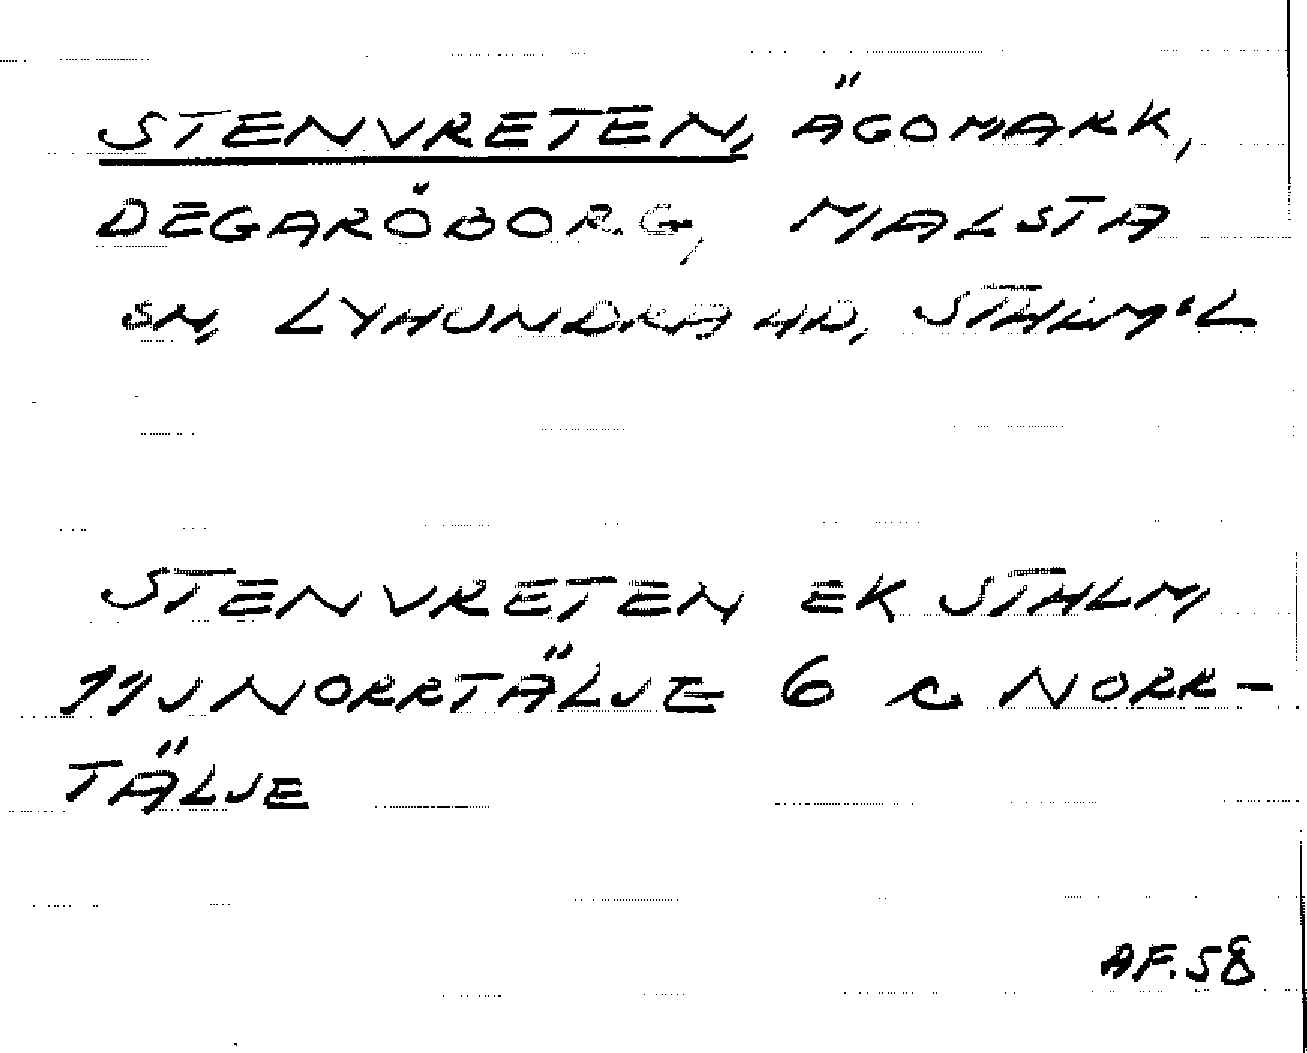 STENVRETEN, ÄGOMARK,
DEGARÖBORG, MALSTA
SN, LYHUNDRA HD, STHLMSL
STENVRETEN EK STHLM
11J NORRTÄLJE 6 c NORR-
TÄLJE
AF.58